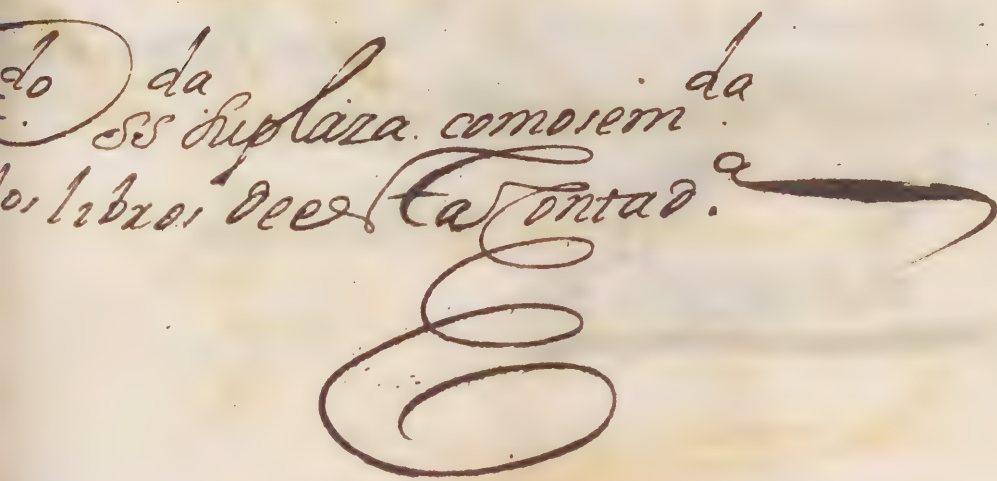 do da SS su plaza. como se m.da
los libros de esta Contad.a